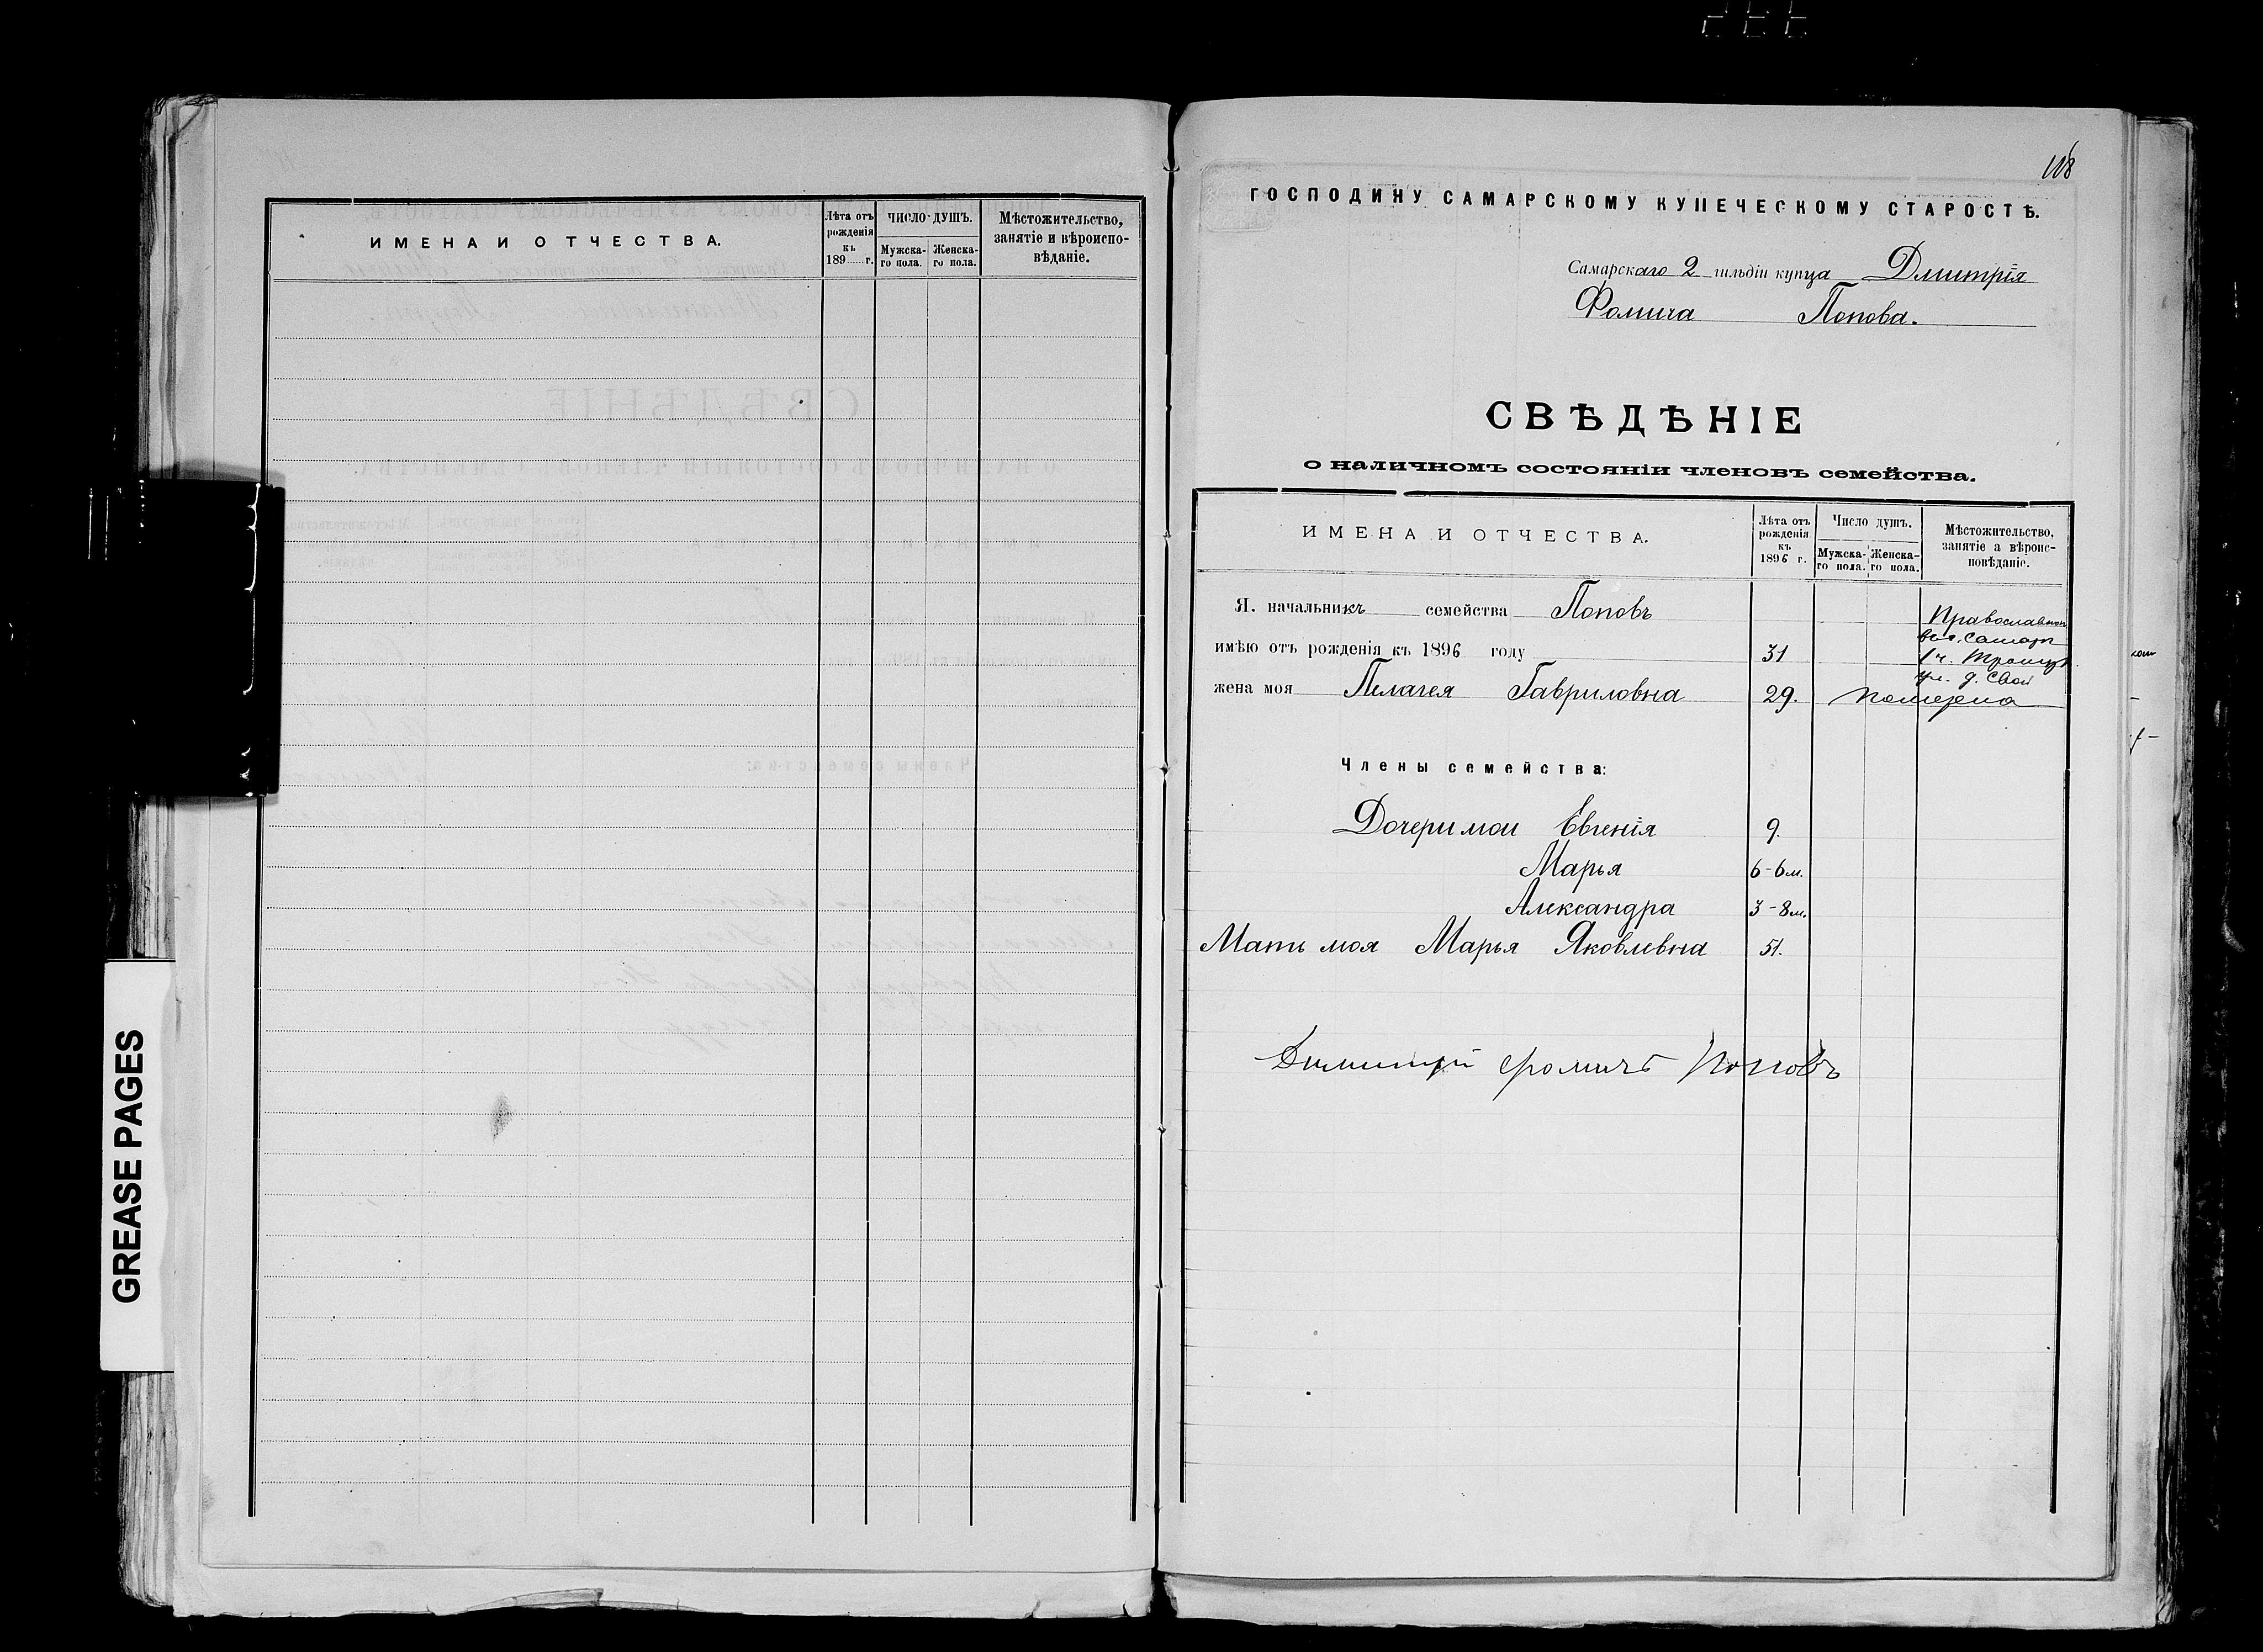 ИМЕНА И ОТЧЕСТВА.
Лѣта отъ рожденія къ 189 г.
ЧИСЛО ДУШЪ.
Мужска-
го пола.
Женска-
го пола.
Мѣстожительство,
занятіе и вѣроиспо-
вѣданіе.
GREASE PAGES
118
ГОСПОДИНУ САМАРСКОМУ КУПЕЧЕСКОМУ СТАРОСТѢ.
Самарскаго 2 гильдіи купца Дмитрія
Фомича Попова.
СВѢДѢНІЕ
о наличномъ состояніи членовъ семейства.
ИМЕНА И ОТЧЕСТВА.
Лѣта отъ
рожденія
къ
1896 г.
Число душъ.
Мужска-
го пола.
Женска-
го пола.
Мѣстожительство,
занятіе а вѣроис-
повѣданіе.
Я. начальникъ семейства Поповъ
имѣю отъ рожденія къ 1896 году 31
жена моя Пелагея Гавриловна 29.
Православнаго
1 ч. Троицк
ул. д. Свой
Члены семейства:
Дочери мои Евгенія 9.
Марья 6-6м.
Александра 3-8м.
Мать моя Марья Яковлевна 51.
Димитрій Фомичъ Поповъ